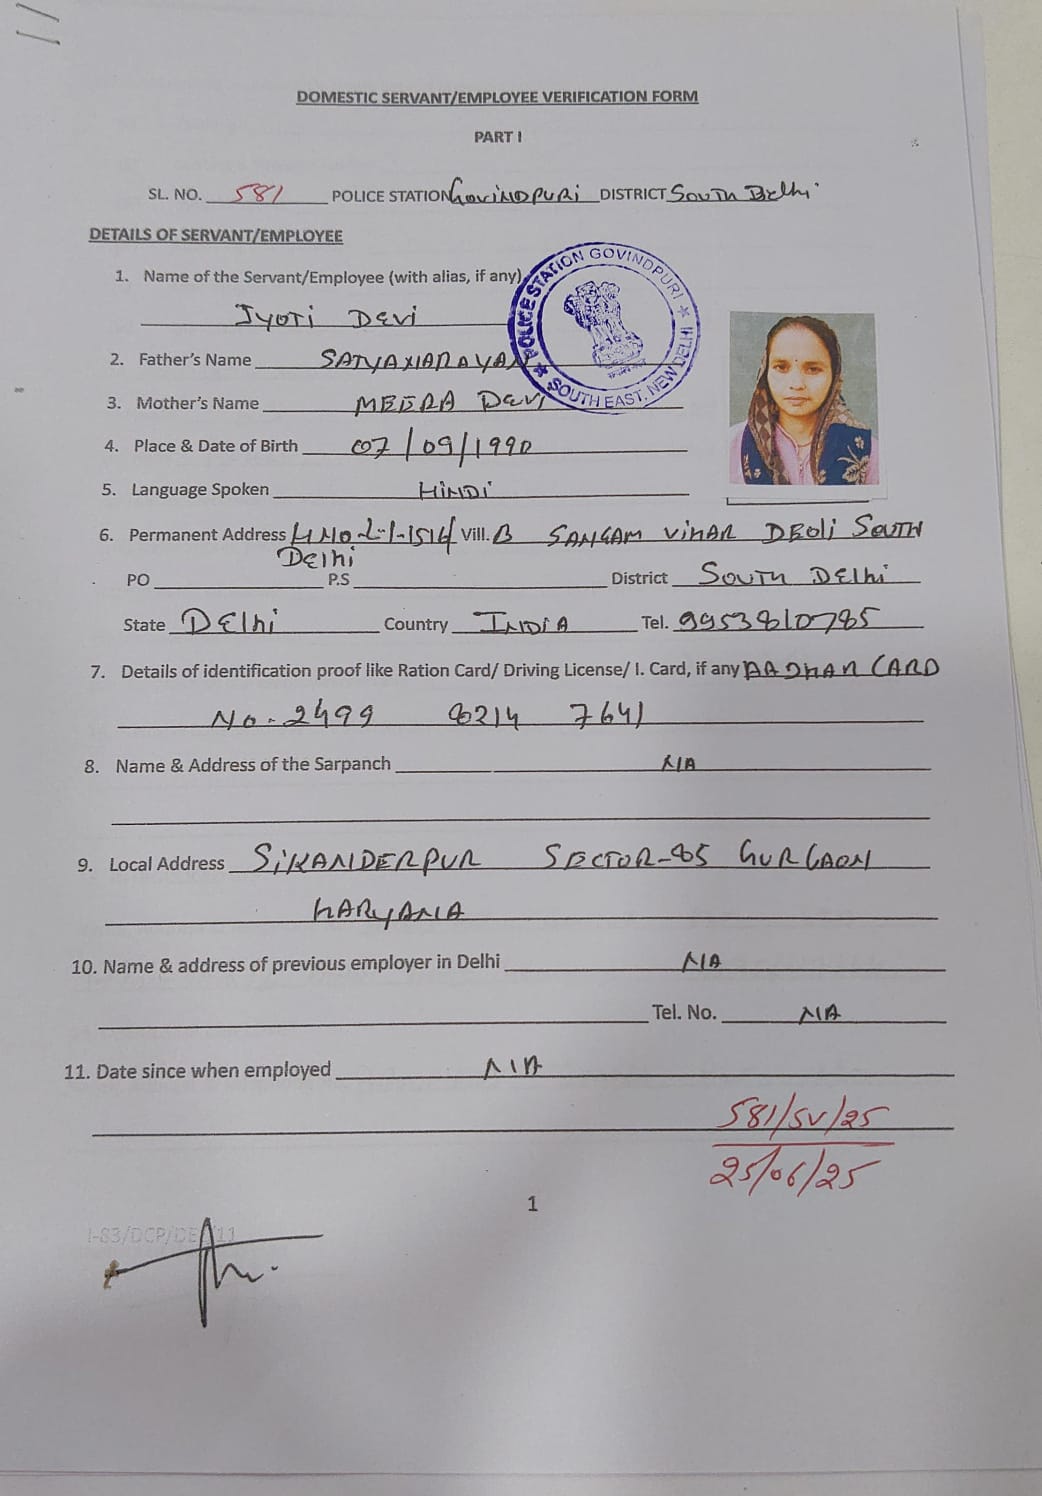 DOMESTIC SERVANT/EMPLOYEE VERIFICATION FORM
PART I
SL. NO. 581 POLICE STATION GOVINDPURI DISTRICT South Delhi
DETAILS OF SERVANT/EMPLOYEE
1. Name of the Servant/Employee (with alias, if any)
Jyoti Devi
POLICE STATION GOVINDPURI
SOUTH EAST, NEW DELHI
2. Father's Name SATYANARAYAN
3. Mother's Name MEERA Devi
4. Place & Date of Birth 07/09/1990
5. Language Spoken HINDI
6. Permanent Address H NO-L-1-1516 Vill. B SANGAM VIHAR DEOLI SOUTH
Delhi
PO P.S District South Delhi
State Delhi Country INDIA Tel. 9953810785
7. Details of identification proof like Ration Card/ Driving License/ I. Card, if any AADHAR CARD
No.-2499 8214 7641
8. Name & Address of the Sarpanch N/A
9. Local Address SIKANDERPUR SECTOR-85 GURGAON
HARYANA
10. Name & address of previous employer in Delhi N/A
Tel. No. N/A
11. Date since when employed N/A
581/SV/25
25/06/25
1